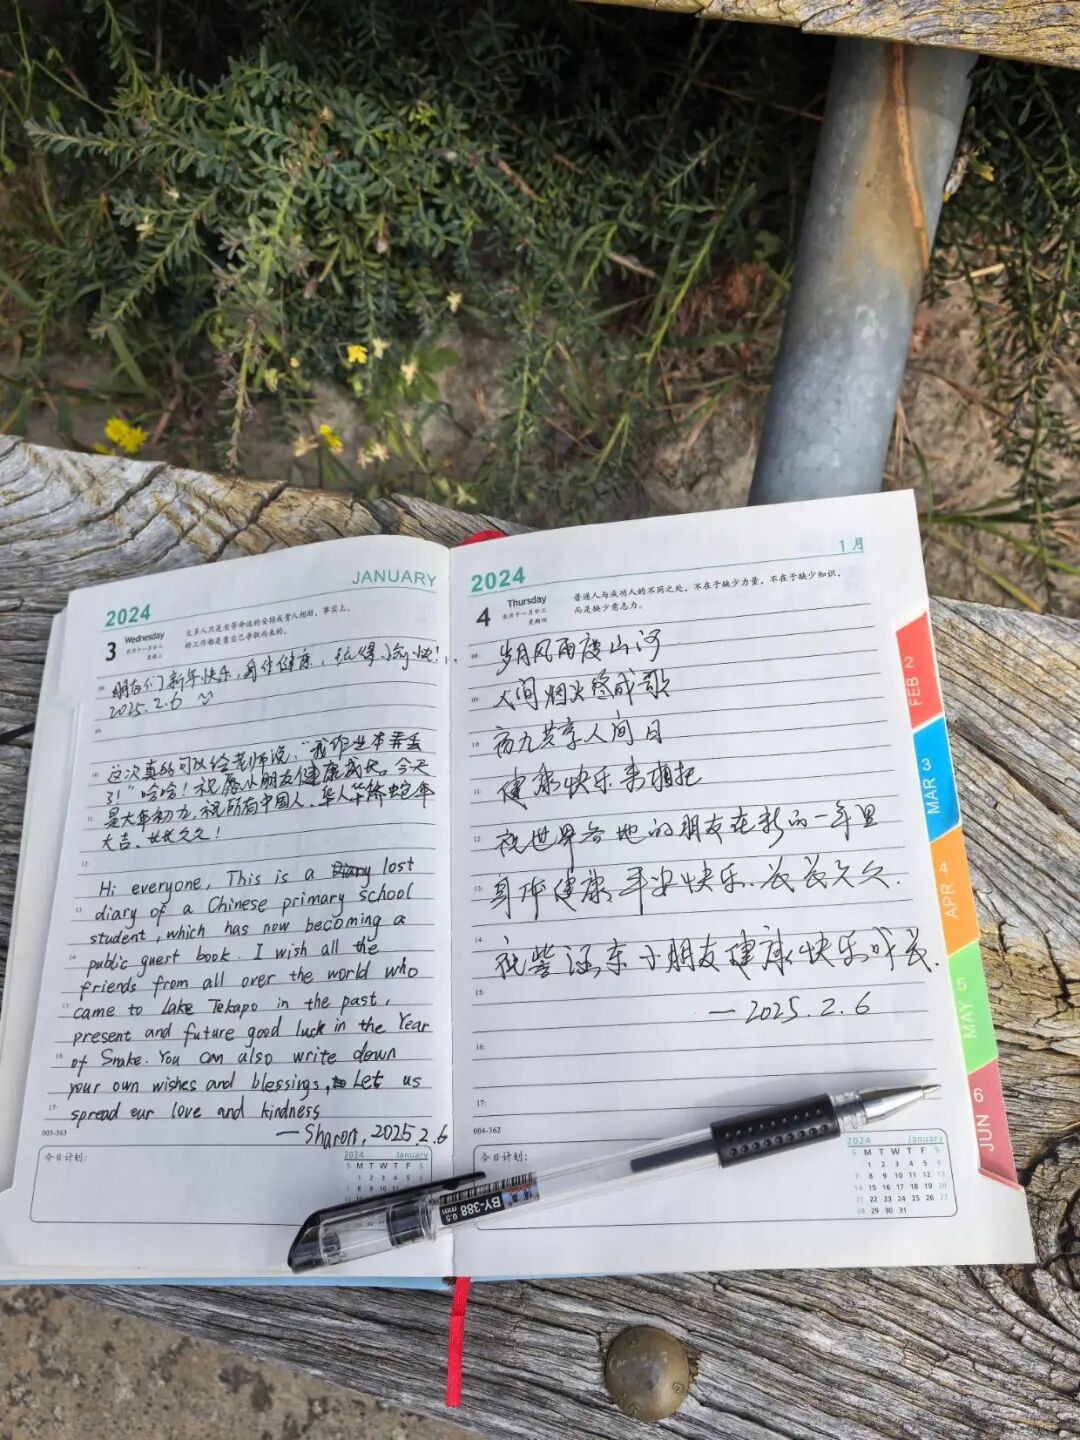 JANUARY
2024
3
Wednesday
农历十一月廿二
星期三
太多人只是坐等命运的安排或贵人相助，事实上，
好工作都是靠自己争取而来的。
朋友们新年快乐，身体健康，玩得愉快！
2025.2.6
这次真的可以给老师说，“我作业本弄丢
了”哈哈！祝愿小朋友健康成长。今天
是大年初九，祝所有中国人、华人华侨蛇年
大吉、长长久久！
Hi everyone, This is a lost
diary of a Chinese primary school
student, which has now becoming a
public guest book. I wish all the
friends from all over the world who
came to Lake Tekapo in the past,
present and future good luck in the Year
of Snake. You can also write down
your own wishes and blessings, Let us
spread our love and kindness
—Sharon, 2025.2.6
003-363
今日计划:
2024 January
S M T W T F S
1月
2024
4
Thursday
农历十一月廿三
星期四
普通人与成功人的不同之处，不在于缺少力量，不在于缺少知识，
而是缺少意志力。
岁月风雨度山河
人间烟火终成歌
初九共享人间日
健康快乐来拥抱
祝世界各地的朋友在新的一年里
身体健康、平安快乐、长长久久.
祝 涵东小朋友健康快乐成长.
—2025.2.6
004-362
今日计划:
2024 January
S M T W T F S
1 2 3 4 5 6
7 8 9 10 11 12 13
14 15 16 17 18 19 20
21 22 23 24 25 26 27
28 29 30 31
2
FEB
3
MAR
4
APR
5
MAY
6
JUN
BY-388
0.5
mm